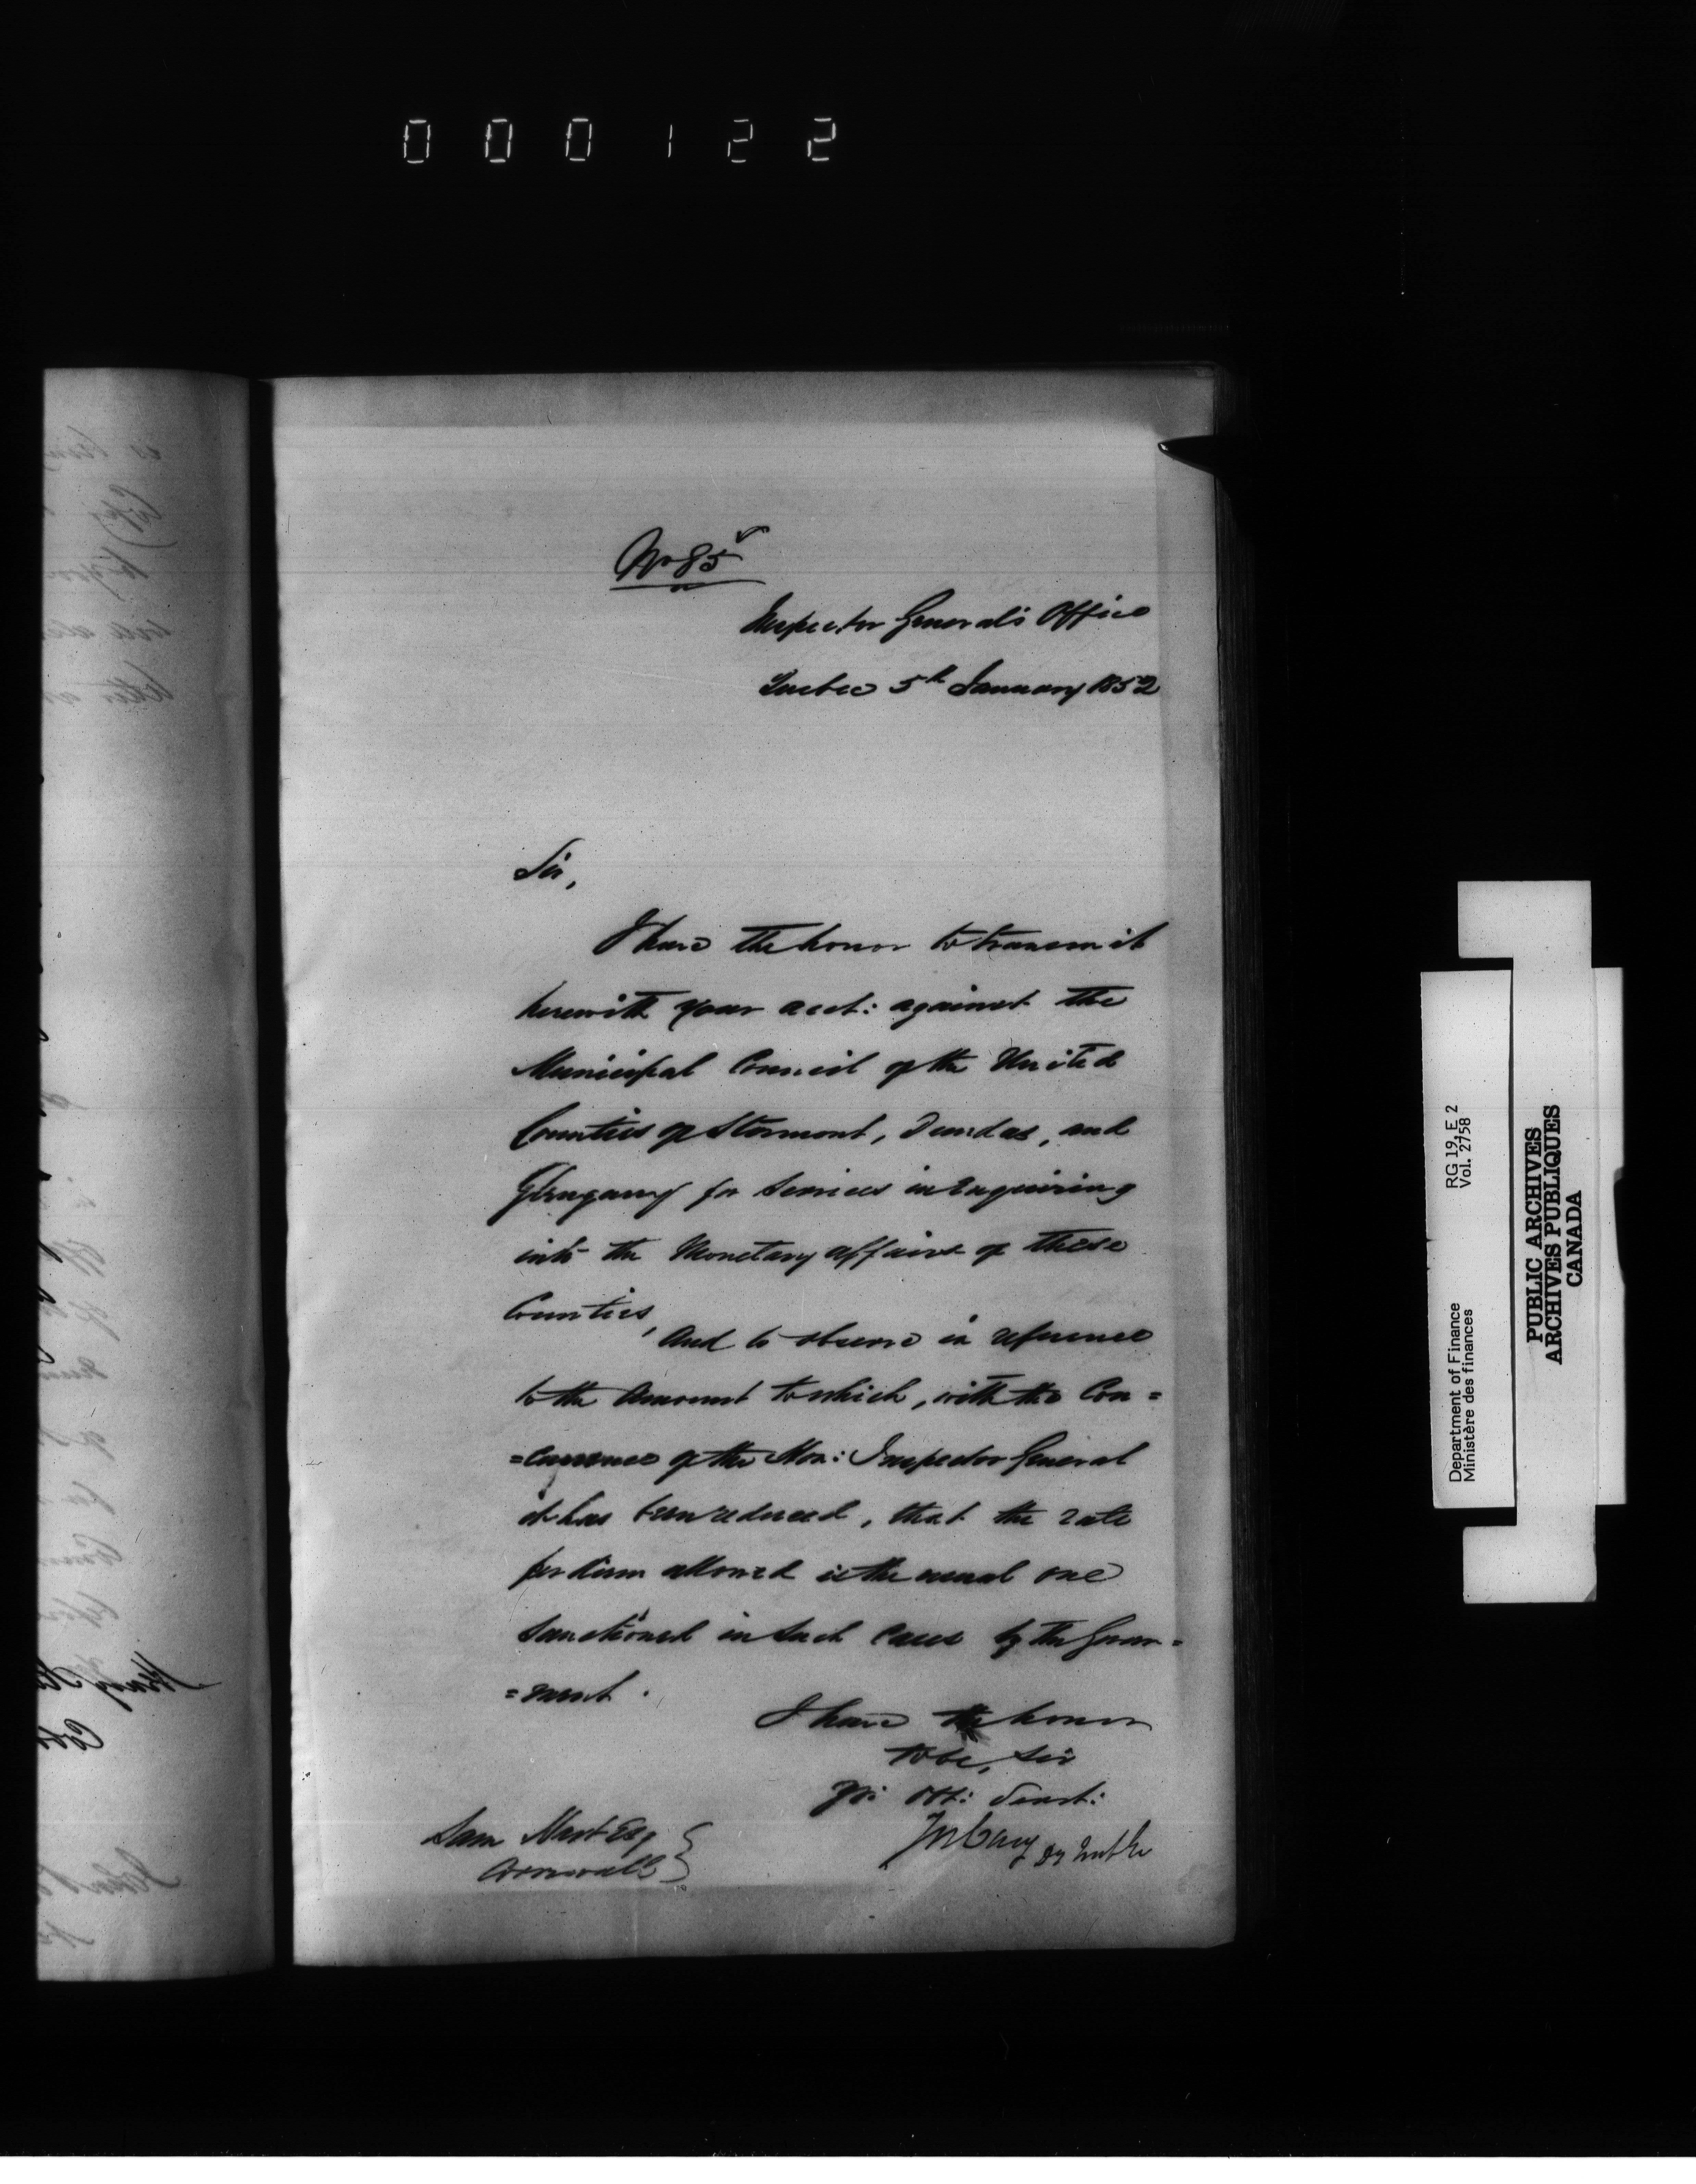 000122
No 85
Inspector General's Office
Quebec 5th January 1852
Sir,
I have the honor to transmit
herewith your acct: against the
Municipal Council of the United
Counties of Stormont, Dundas, and
Glengarry for services in enquiring
into the Monetary affairs of these
Counties,
And to observe in reference
to the Amount to which, with the Con=
=currence of the Hon: Inspector General
it has been reduced, that the rate
per diem allowed is the usual one
sanctioned in such cases by the Govern=
=ment.
I have the honor
to be, Sir
Yr: Obt: Servt:
Jos Cary
Sam Hart Esq
Cornwall
Department of Finance RG 19, E 2
Ministère des finances Vol. 2758
PUBLIC ARCHIVES
ARCHIVES PUBLIQUES
CANADA